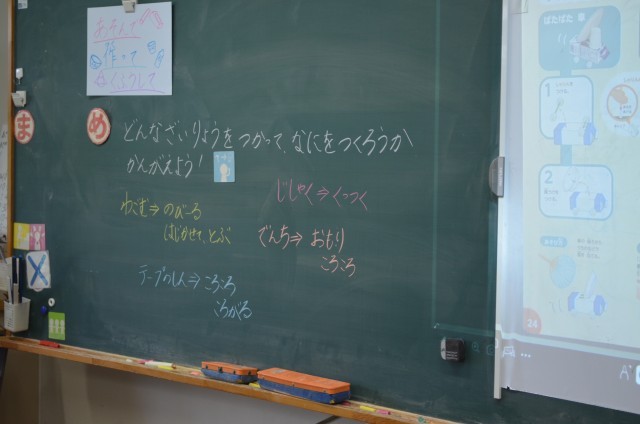 あそんで
作って
くふうして
ま
め
どんなざいりょうをつかって、なにをつくろうか
かんがえよう!
じしゃく⇒くっつく
わごむ⇒のびーる
はじかせて、とぶ
でんち⇒おもり
ころころ
テープのしん⇒ころころ
ころがる
ぱたぱた
1
2
24